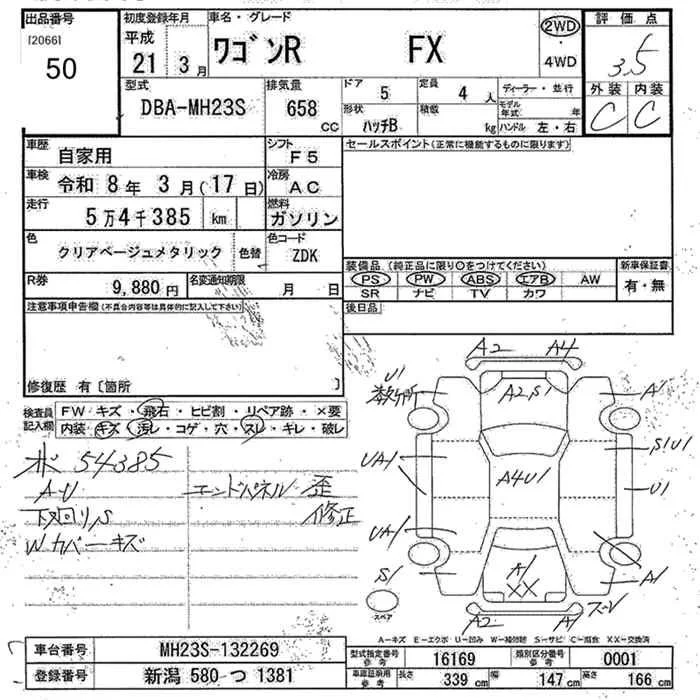 出品番号
[2066]
50
初度登録年月
平成
21 3月
車名・グレード
ワゴンR FX
2WD
・
4WD
評価点
3.5
外装 内装
C C
型式
DBA-MH23S
排気量
658
CC
ドア 5
定員 4 人
形状 ハッチB
積載 kg
ディーラー・並行
モデル年式 年
ハンドル 左・右
車歴 自家用
シフト F5
セールスポイント(正常に機能するものに限ります)
車検 令和 8年 3月(17日)
冷房 AC
走行 5万4千385 km
燃料 ガソリン
色 クリアベージュメタリック 色替
色コード ZDK
装備品 (純正品に限り○をつけてください)
新車保証書
PS PW ABS エアB AW
有・無
SR ナビ TV カワ
R券 9,880円
名変通知期限 月 日
後日品
注意事項申告欄(不具合内容等は具体的に記入して下さい)
修復歴 有〔箇所 〕
検査員記入欄
FW キズ・飛石・ヒビ割・リペア跡・×要
内装 キズ・汚レ・コゲ・穴・スレ・キレ・破レ
54385
A・U
下回りS
Wカバーキズ
エンドパネル 歪
修正
A2 A4
U1
A2,S1
A1
S1U1
UA1
A4U1
U1
UA1
A1
XX
S1
A1
スペア
A2 A1
A-キズ E-エクボ U-凹み W-補修跡 S-サビ C-腐食 XX-交換済
車台番号 MH23S-132269
登録番号 新潟 580 つ 1381
型式指定番号 参考 16169
類別区分番号 参考 0001
車庫証明用 参考 長さ 339 cm 幅 147 cm 高さ 166 cm